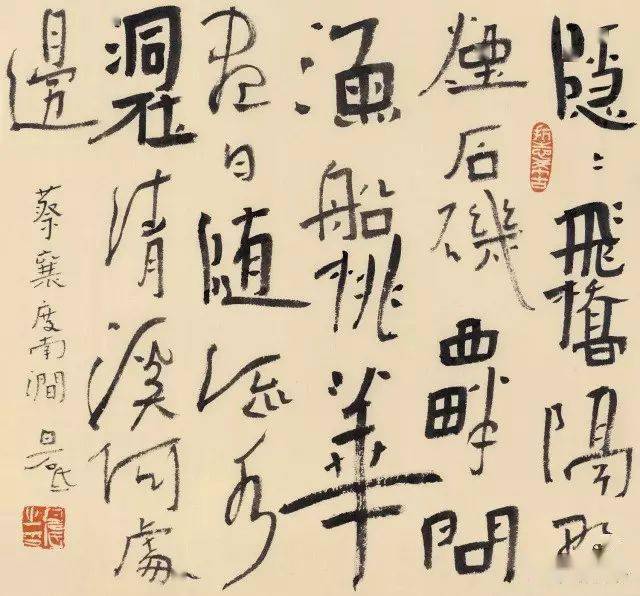 隐〻飛橋隔野
煙石磯西畔問
漁船桃華
盡日随流水
洞在清溪何處
邊
蔡襄度南澗